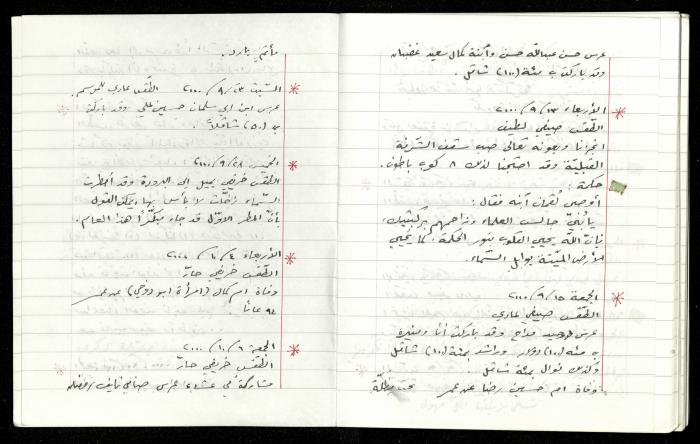 عرس حسن عبدالله حسن وآمنة كمال سعيد غضبان
وقد باركت بـ مئة (١٠٠) شاقل.
الأربعاء ١٣ / ٩ / ٢٠٠٠
الطقس صيفي لطيف
انجزنا وبعونه تعالى صب سقف الشرفة
القبلية وقد احتجنا لذلك ٨ كوب باطون.
حكمة :
أوصى لقمان ابنه فقال :
يا بُنيّ جالس العلماء وزاحمهم بركبتيك،
فإن الله يحيي القلوب بنور الحكمة، كما يحيي
الأرض الميتة بوابل السماء.
الجمعة ١٥ / ٩ / ٢٠٠٠
الطقس صيفي عادي
عرس وحيد فلاح وقد باركت أنا ومنيرة
بـ مئة (١٠٠) دولار وراشد بمئة (١٠٠) شاقل
وكذلك نوال بمئة شاقل.
وفاة ام حسين رضا عن عمر
مأتم بارد.
السبت ٢٣ / ٩ / ٢٠٠٠ الطقس عادي للموسم
عرس ابن ابي سلمان حسين علي وقد باركت
بـ (٥٠) شاقلاً.
الخميس ٢٨ / ٩ / ٢٠٠٠
الطقس خريفي يميل الى البرودة وقد أمطرت
السماء زخّات لا بأس بها، يمكن القول
بأن المطر الاول قد جاء مبكراً هذا العام.
الأربعاء ٤ / ١٠ / ٢٠٠٠
الطقس خريفي حارّ
وفاة ام كمال (امرأة ابو روحي) عن عمر
٩٤ عاماً
الجمعة ٦ / ١٠ / ٢٠٠٠
الطقس خريفي حارّ
مشاركة في عشاء عرس صافي نايف